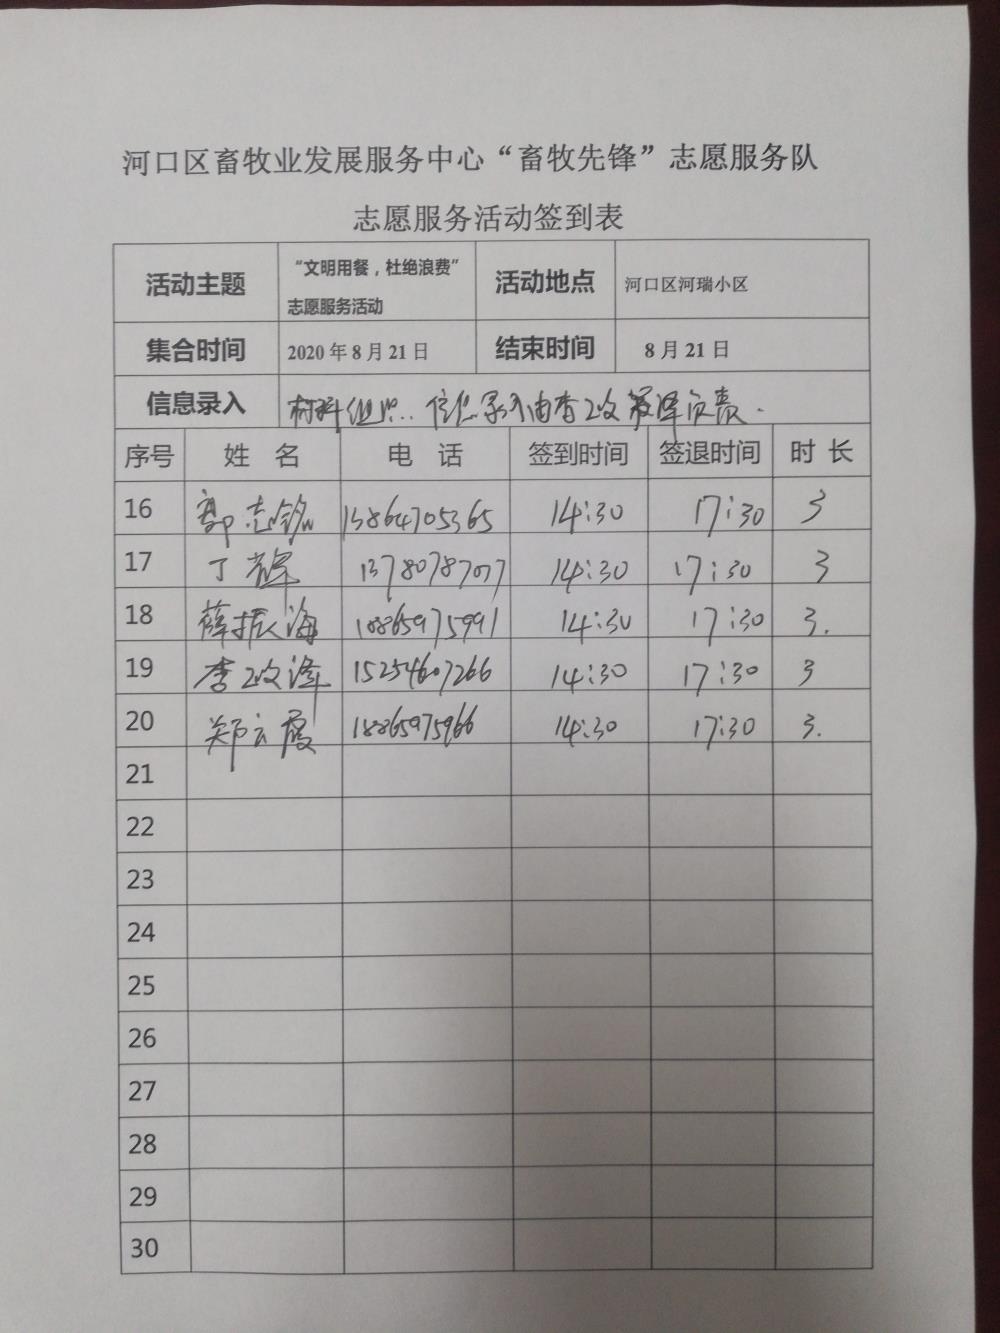 河口区畜牧业发展服务中心“畜牧先锋”志愿服务队
志愿服务活动签到表
活动主题 “文明用餐，杜绝浪费” 志愿服务活动 活动地点 河口区河瑞小区
集合时间 2020年8月21日 结束时间 8月21日
信息录入 材料组织、信息录入由李政泽负责.
序号 姓 名 电 话 签到时间 签退时间 时 长
16 郭志铭 13864705365 14:30 17:30 3
17 丁辉 14:30 17:30 3
18 薛振海 18865975991 14:30 17:30 3.
19 李政泽 15254607266 14:30 17:30 3
20 郑云霞 18865975966 14:30 17:30 3.
21
22
23
24
25
26
27
28
29
30